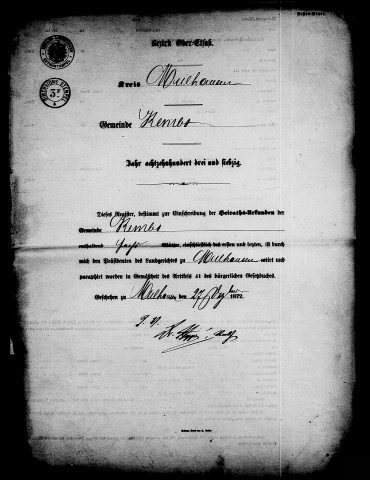 Bezirk Ober-Elsaß.
Kreis Mülhausen
Gemeinde Kembs
Jahr achtzehnhundert drei und siebzig.
Dieses Register, bestimmt zur Einschreibung der Heiraths-Urkunden der
Gemeinde Kembs
enthaltend sechs Blätter, einschließlich des ersten und letzten, ist durch
mich den Präsidenten des Landgerichtes zu Mülhausen cotirt und
paraphirt worden in Gemäßheit des Artikels 41 des bürgerlichen Gesetzbuches.
Geschehen zu Mülhausen, den 27 Dezber 1872.